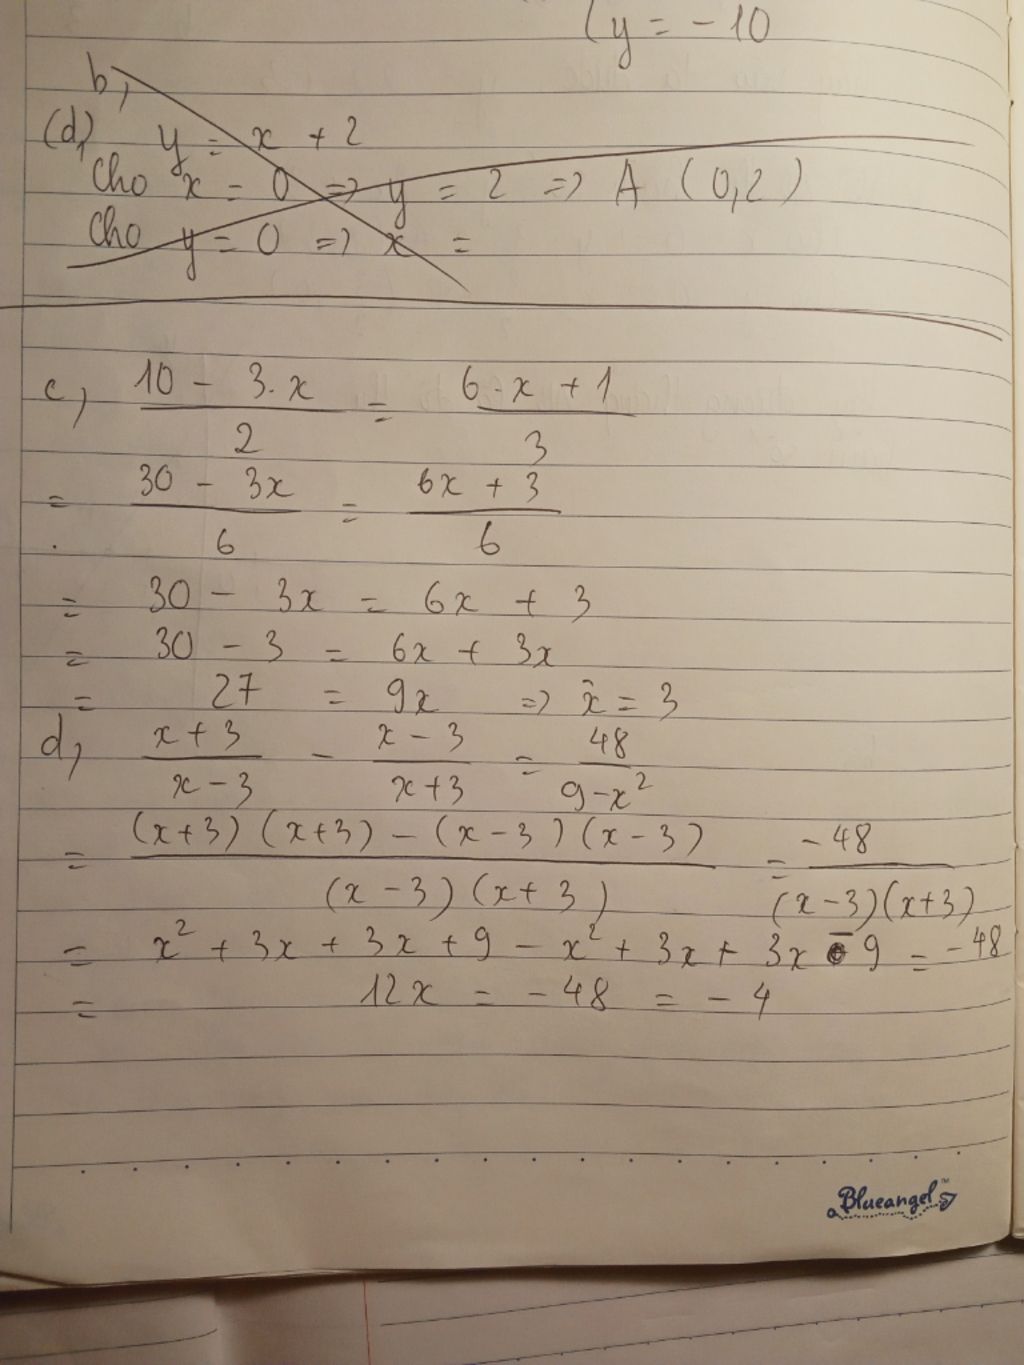 (y = -10
b,
(d) y = x + 2
Cho x = 0 => y = 2 => A (0,2)
Cho y = 0 => x =
c, \frac{10 - 3.x}{2} = \frac{6.x + 1}{3}
= \frac{30 - 3x}{6} = \frac{6x + 3}{6}
= 30 - 3x = 6x + 3
= 30 - 3 = 6x + 3x
= 27 = 9x => x = 3
d, \frac{x + 3}{x - 3} - \frac{x - 3}{x + 3} = \frac{48}{9 - x^2}
= \frac{(x + 3)(x + 3) - (x - 3)(x - 3)}{(x - 3)(x + 3)} = \frac{-48}{(x - 3)(x + 3)}
= x^2 + 3x + 3x + 9 - x^2 + 3x + 3x - 9 = -48
= 12x = -48 = -4
Blueangel™